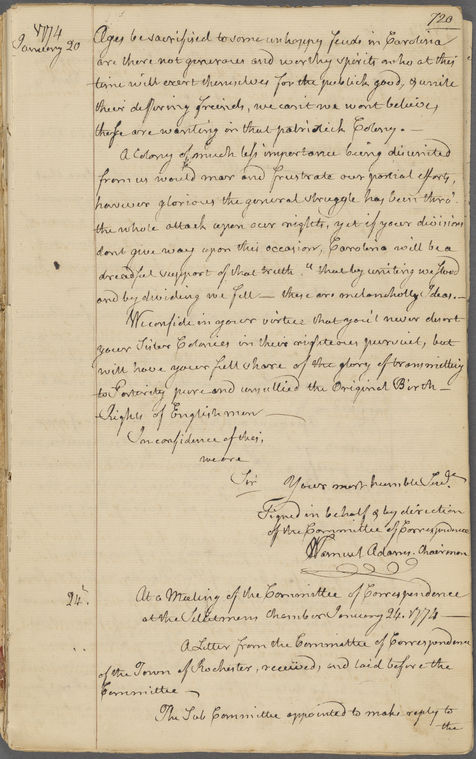 720
1774
January 20
Ages be sacrificed to some unhappy feuds in Carolina
are there not generous and worthy spirits who at this
time will exert themselves for the publick good, & unite
their differing freinds, we can't we wont believe,
these are wanting in that patriotick Colony. —
A Colony of much less importance being disunited
from us would mar and frustrate our partial efforts,
however glorious the general struggle has been thro'
the whole attack upon our rights, yet if your divisions
dont give way upon this occasion, Carolina will be a
dreadful support of that truth, "that by uniting we stand
and by dividing we fall — these are melancholly Ideas. —
We confide in your virtue that you'l never desert
your Sister Colonies in their righteous pursuit, but
will have your full share of the glory of transmitting
to Posterity pure and unsullied the Original Birth—
Rights of Englishmen —
In confidence of this,
we are
Sir Your most humble Servts
Signed in behalf & by direction
of the Committee of Correspondence
Samuel Adams. Chairman
24.
At a Meeting of the Committee of Correspondence
at the Selectmens Chamber January 24. 1774 —
A Letter from the Committee of Correspondence
of the Town of Rochester, received, and laid before the
Committee —
The Sub Committee appointed to make reply to
the